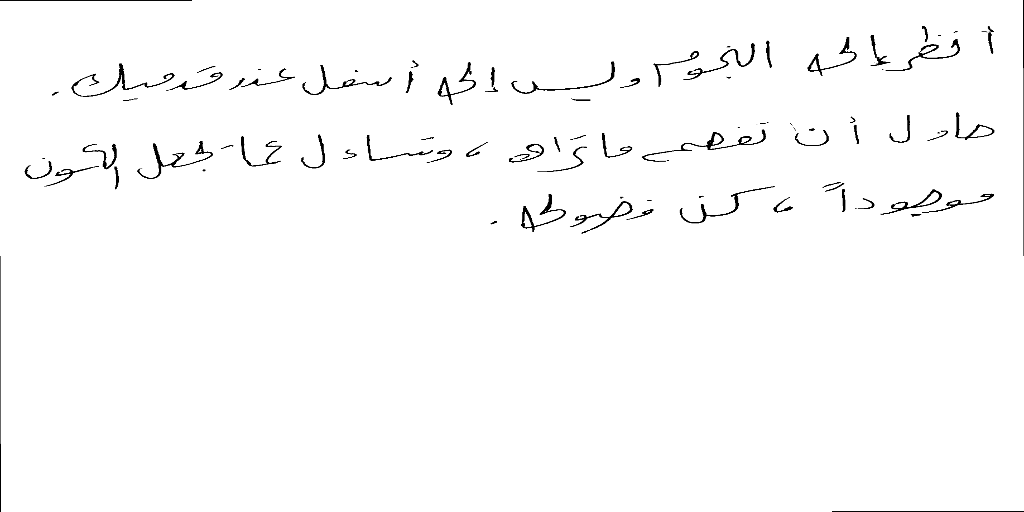 أنظر إلى النجوم وليس إلى أسفل عند قدميك.
حاول أن تفهم ما تراه، وتساءل عما يجعل الكون
موجوداً، كن فضولي.